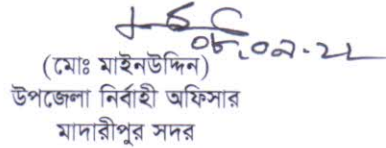 ০৮.০৯.২২
(মোঃ মাইনউদ্দিন)
উপজেলা নির্বাহী অফিসার
মাদারীপুর সদর